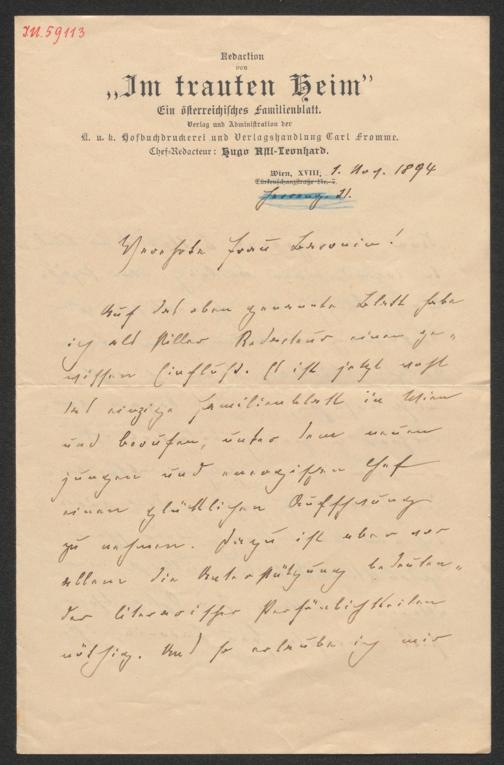 I.N. 59113
Redaction
von
„Im trauten Heim"
Ein österreichisches Familienblatt.
Verlag und Administration der
K. u. k. Hofbuchdruckerei und Verlagshandlung Carl Fromme.
Chef-Redacteur: Hugo Astl-Leonhard.
Wien, XVIII, 1. Nov. 1894
Türkenschanzstraße Nr.
Verehrte Frau Baronin!
Auf das oben genannte Blatt habe
ich als stiller Redacteur einen ge-
wissen Einfluß. Es ist jetzt wohl
das einzige Familienblatt in Wien
und berufen, unter dem neuen
jungen und energischen Chef
einen glücklichen Aufschwung
zu nehmen. Dazu ist aber vor
allem die Unterstützung bedeuten-
der literarischer Persönlichkeiten
nöthig. Und so erlaube ich mir